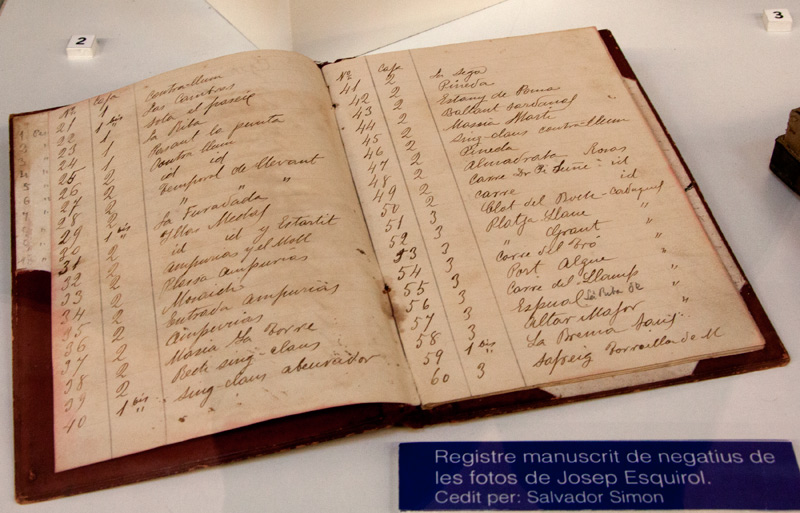 2
3
Nº Capa
contrallum
21 1 Las Cambras
22 1 bis Sota el passeig
23 1 La Riba
24 1 Passant la punta
25 1 Contra llum
26 2 id id
27 2 Temporal de llevant
28 2 " "
29 2 La Furadada "
30 1 bis Yllas Medas
31 2 id id y Estartit
32 2 Ampurias y el Moll
33 2 Plassa Ampurias
34 2 Mosaichs
35 2 Entrada Ampurias
36 2 Ampurias
37 2 Masia la Torre
38 2 Bech sing-claus
39 2 sing-claus abeurador
40 1 bis "
Nº Capa
41 2 la Sega
42 2 Pineda
43 2 Estany de Poma
44 2 Ballant sardanas
45 2 Massia Marti "
46 2 sing-claus contra-llum
47 2 Pineda
48 2 Almadrava Rosas
49 2 Carre Dr id
50 2 carre id
51 3 Clot del
52 3 Platja Llane
53 3 " Grant "
54 3 Carre del Tró "
55 3 Port Algue
56 3 Carre del Llamp "
57 3 Espual La Puta de "
58 3 Altar Major "
59 1 bis La Brema
60 3 Safreig Torroella de M
Registre manuscrit de negatius de
les fotos de Josep Esquirol.
Cedit per: Salvador Simon